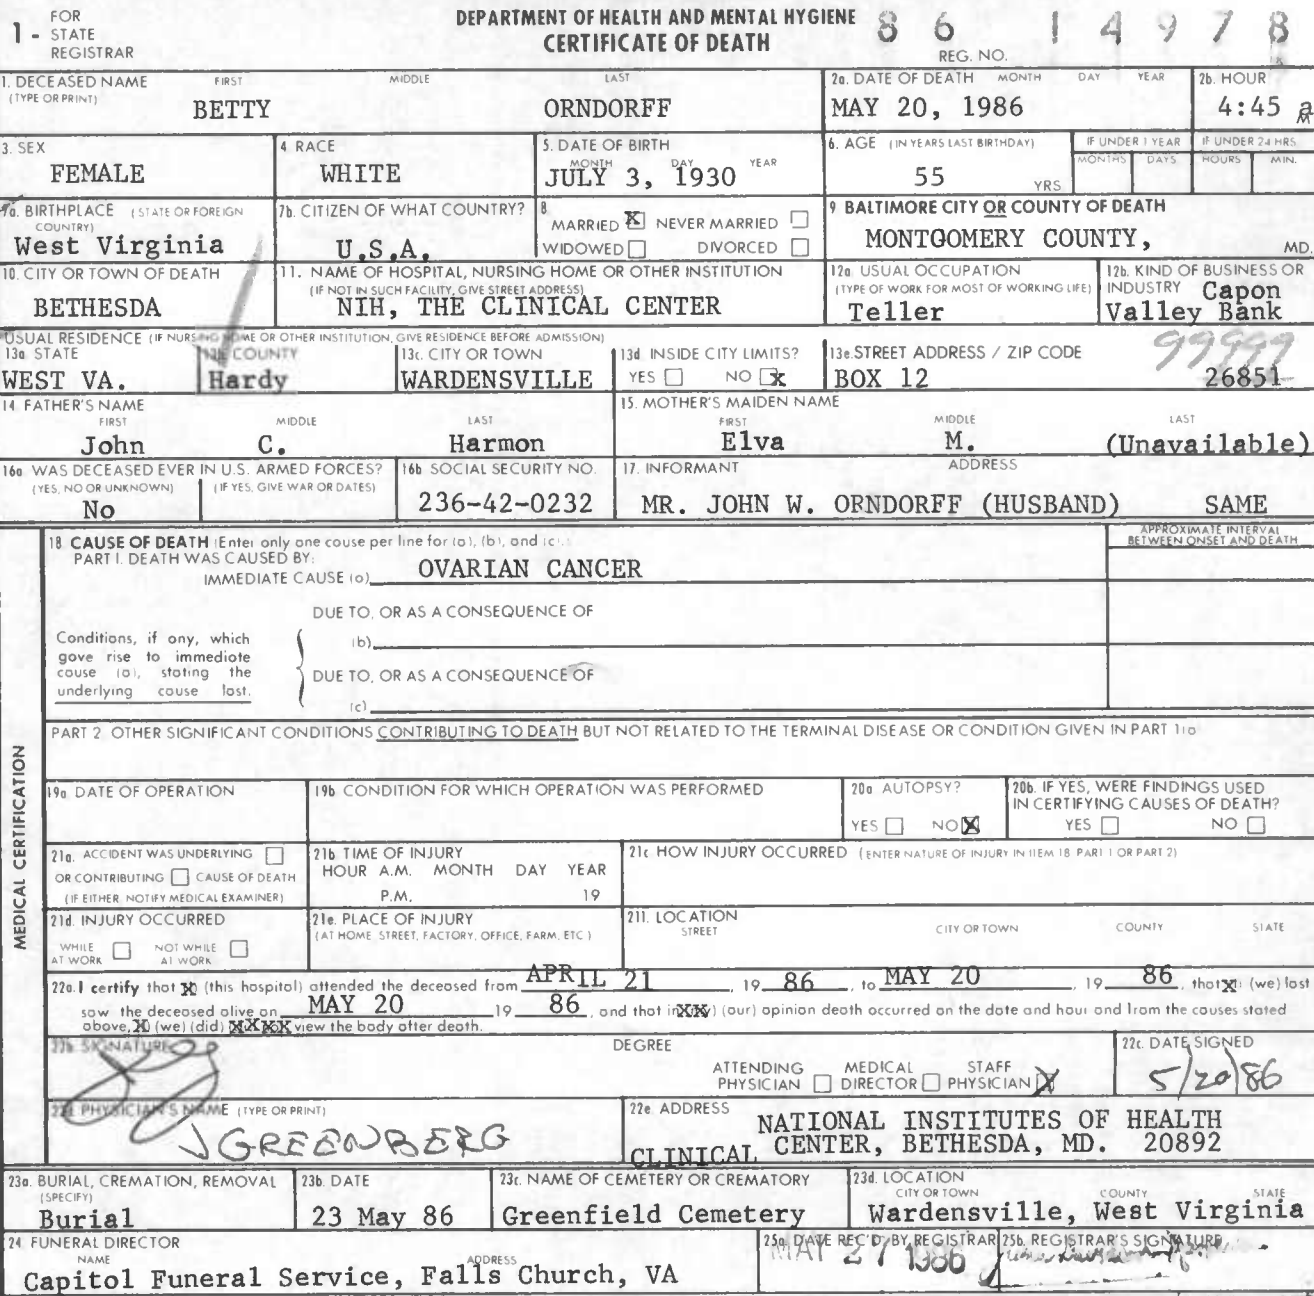 1 - FOR STATE REGISTRAR
DEPARTMENT OF HEALTH AND MENTAL HYGIENE
CERTIFICATE OF DEATH
86 14978
REG. NO.
1. DECEASED NAME (TYPE OR PRINT) FIRST MIDDLE LAST
BETTY ORNDORFF
2a. DATE OF DEATH MONTH DAY YEAR
MAY 20, 1986
2b. HOUR
4:45 a M
3. SEX
FEMALE
4 RACE
WHITE
5. DATE OF BIRTH MONTH DAY YEAR
JULY 3, 1930
6. AGE (IN YEARS LAST BIRTHDAY)
55 YRS
IF UNDER 1 YEAR MONTHS DAYS
IF UNDER 24 HRS HOURS MIN.
7a. BIRTHPLACE (STATE OR FOREIGN COUNTRY)
West Virginia
7b. CITIZEN OF WHAT COUNTRY?
U.S.A.
8. MARRIED X NEVER MARRIED
WIDOWED DIVORCED
9 BALTIMORE CITY OR COUNTY OF DEATH
MONTGOMERY COUNTY, MD.
10. CITY OR TOWN OF DEATH
BETHESDA
11. NAME OF HOSPITAL, NURSING HOME OR OTHER INSTITUTION
(IF NOT IN SUCH FACILITY, GIVE STREET ADDRESS)
NIH, THE CLINICAL CENTER
12a. USUAL OCCUPATION
(TYPE OF WORK FOR MOST OF WORKING LIFE)
Teller
12b. KIND OF BUSINESS OR INDUSTRY
Capon Valley Bank
USUAL RESIDENCE (IF NURSING HOME OR OTHER INSTITUTION, GIVE RESIDENCE BEFORE ADMISSION)
13a. STATE
WEST VA.
13b. COUNTY
Hardy
13c. CITY OR TOWN
WARDENSVILLE
13d INSIDE CITY LIMITS?
YES NO X
13e. STREET ADDRESS / ZIP CODE
99999
BOX 12 26851
14 FATHER'S NAME FIRST MIDDLE LAST
John C. Harmon
15. MOTHER'S MAIDEN NAME FIRST MIDDLE LAST
Elva M. (Unavailable)
16a WAS DECEASED EVER IN U.S. ARMED FORCES?
(YES, NO OR UNKNOWN) (IF YES, GIVE WAR OR DATES)
No
16b SOCIAL SECURITY NO.
236-42-0232
17. INFORMANT ADDRESS
MR. JOHN W. ORNDORFF (HUSBAND) SAME
MEDICAL CERTIFICATION
18 CAUSE OF DEATH (Enter only one cause per line for (a), (b), and (c).
PART I. DEATH WAS CAUSED BY:
IMMEDIATE CAUSE (a) OVARIAN CANCER
APPROXIMATE INTERVAL BETWEEN ONSET AND DEATH
DUE TO, OR AS A CONSEQUENCE OF
(b)
Conditions, if any, which gave rise to immediate cause (a), stating the underlying cause last.
DUE TO, OR AS A CONSEQUENCE OF
(c)
PART 2. OTHER SIGNIFICANT CONDITIONS CONTRIBUTING TO DEATH BUT NOT RELATED TO THE TERMINAL DISEASE OR CONDITION GIVEN IN PART 1(a)
19a DATE OF OPERATION
19b CONDITION FOR WHICH OPERATION WAS PERFORMED
20a AUTOPSY?
YES NO X
20b. IF YES, WERE FINDINGS USED IN CERTIFYING CAUSES OF DEATH?
YES NO
21a. ACCIDENT WAS UNDERLYING
OR CONTRIBUTING CAUSE OF DEATH
(IF EITHER, NOTIFY MEDICAL EXAMINER)
21b TIME OF INJURY
HOUR A.M. MONTH DAY YEAR
P.M. 19
21c HOW INJURY OCCURRED (ENTER NATURE OF INJURY IN ITEM 18 PART 1 OR PART 2)
21d. INJURY OCCURRED
WHILE AT WORK NOT WHILE AT WORK
21e. PLACE OF INJURY
(AT HOME, STREET, FACTORY, OFFICE, FARM, ETC.)
21f. LOCATION STREET CITY OR TOWN COUNTY STATE
22a. I certify that X (this hospital) attended the deceased from APRIL 21, 19 86, to MAY 20, 19 86, that X (we) last
saw the deceased alive on MAY 20 19 86, and that in XX (our) opinion death occurred on the date and hour and from the causes stated
above, X (we) (did) XXXX view the body after death.
22b. SIGNATURE
DEGREE
ATTENDING PHYSICIAN MEDICAL DIRECTOR STAFF PHYSICIAN X
22c. DATE SIGNED
5/20/86
22d PHYSICIAN'S NAME (TYPE OR PRINT)
J GREENBERG
22e ADDRESS
NATIONAL INSTITUTES OF HEALTH
CLINICAL CENTER, BETHESDA, MD. 20892
23a. BURIAL, CREMATION, REMOVAL (SPECIFY)
Burial
23b. DATE
23 May 86
23c. NAME OF CEMETERY OR CREMATORY
Greenfield Cemetery
23d. LOCATION CITY OR TOWN COUNTY STATE
Wardensville, West Virginia
24 FUNERAL DIRECTOR NAME ADDRESS
Capitol Funeral Service, Falls Church, VA
25a. DATE REC'D. BY REGISTRAR
MAY 27 1986
25b. REGISTRAR'S SIGNATURE